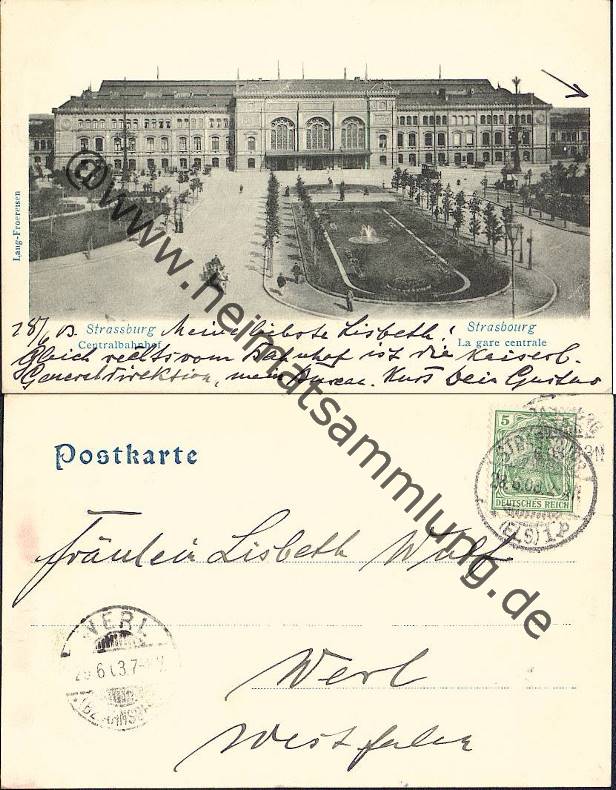 Lang-Froereisen
28/6 03 Strassburg Meine liebste Lisbeth! Strasbourg
Centralbahnhof La gare centrale
Gleich rechts vom Bahnhof ist die Kaiserl.
Generaldirektion, mein Bureau. Kuss Dein Gustav
@www.heimatsammlung.de
Postkarte
5
DEUTSCHES REICH
STRASSBURG
28.6.03
(ELS) 1
Fräulein Lisbeth Wulf
WERL
Werl
Westfalen